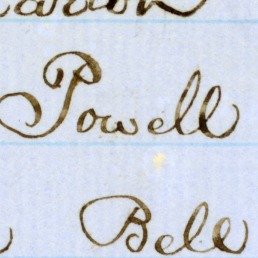 Powell
Bell